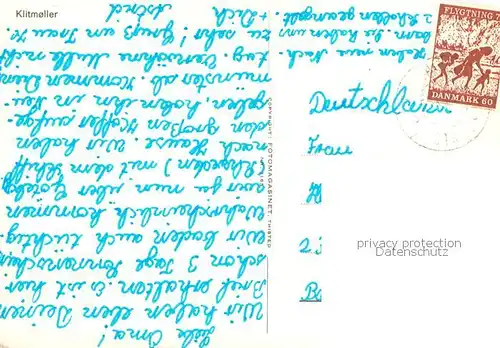 Klitmøller
Liebe Oma!
Wir haben Deinen
Brief erhalten. Es ist hier
schon 3 Tage Sonnenschein
Wir baden auch tüchtig.
Wahrscheinlich kommen
wir ja nun über Goteborg
(Schweden) mit dem Schiff
nach Hause. Wir haben
den großen Koffer aufge-
geben, holen ihn in
münster ab. Kommen Dienstag
zu sehr! Gruß an Frau
+ Dich
Astrid
Haben neue Nach-
barn. Sie haben uns
2 Schollen geangelt.
COPYRIGHT: FOTOMAGASINET, THISTED
FLYGTNING
DANMARK 60
Deutschland
Frau
privacy protection
Datenschutz